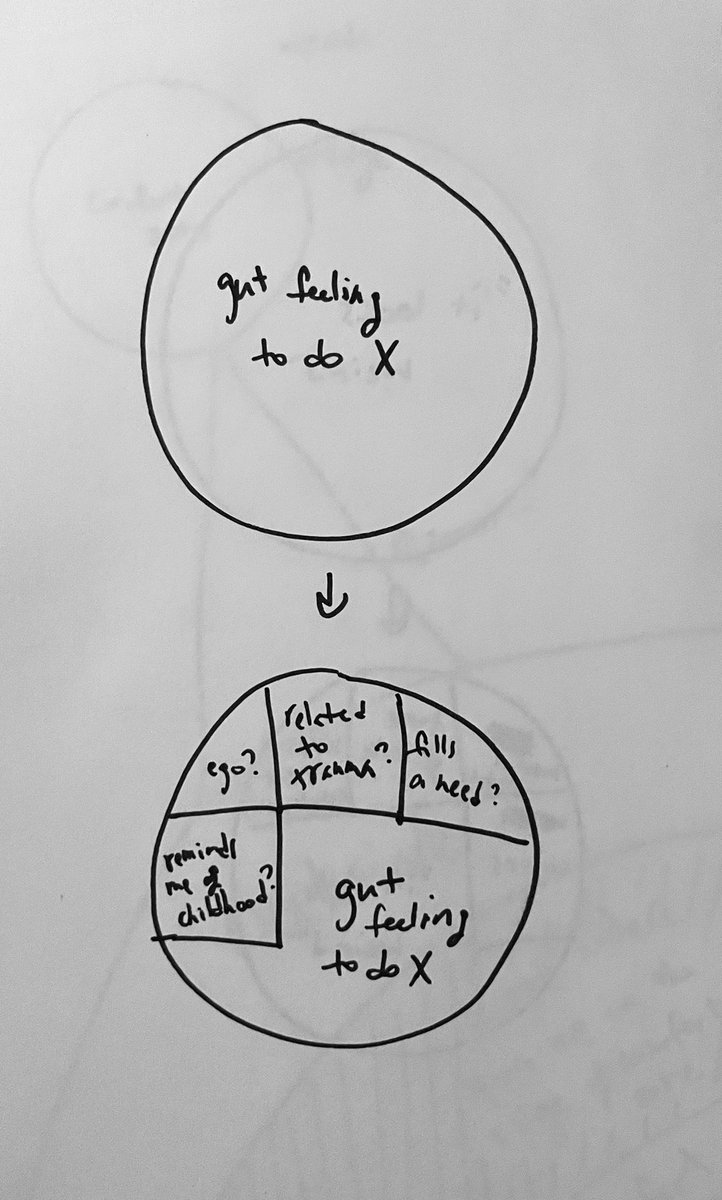 gut feeling
to do X
ego?
related
to
trauma?
fills
a need?
reminds
me of
childhood?
gut
feeling
to do X